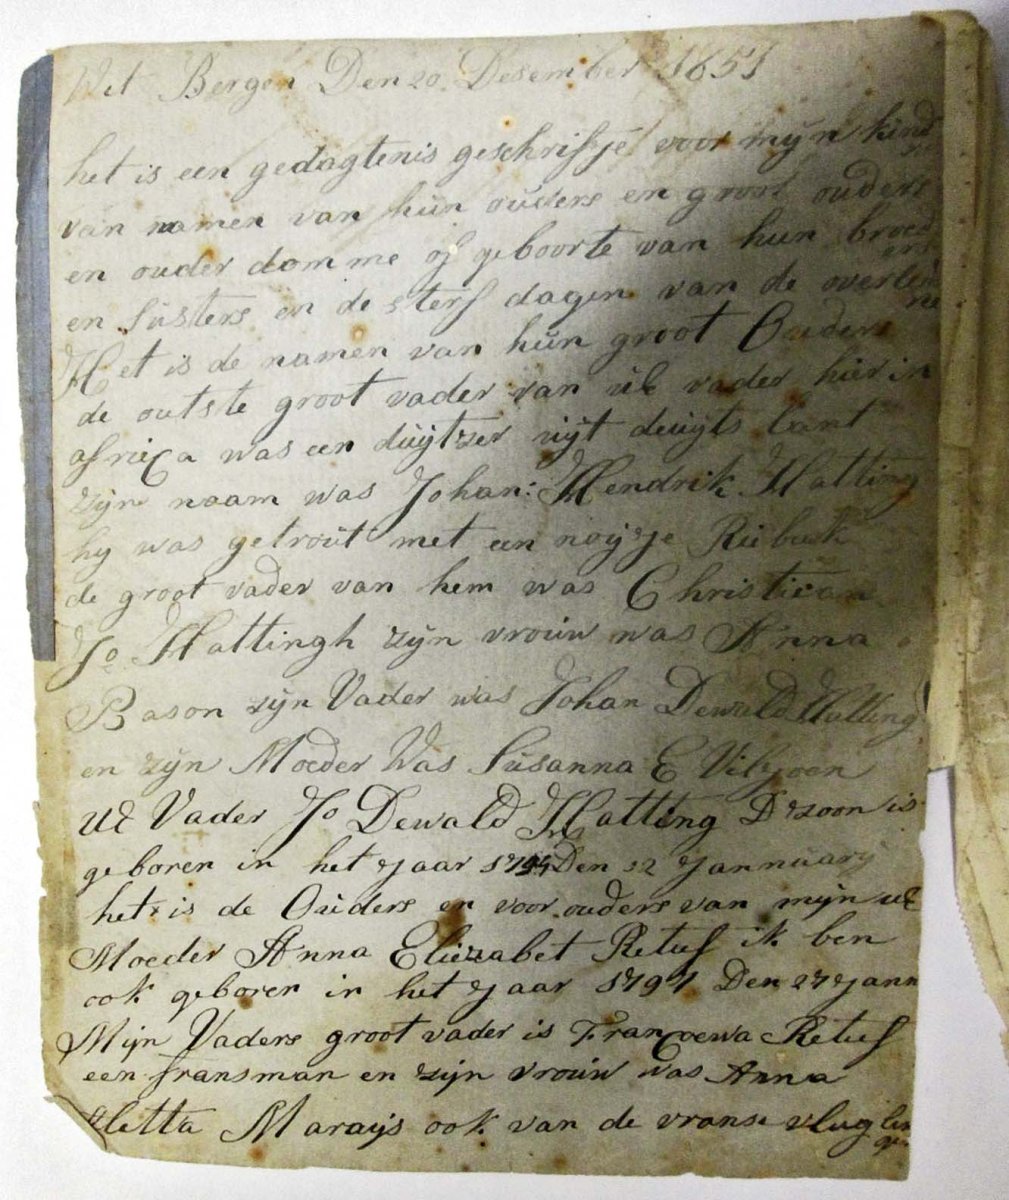 Wit Bergen Den 20 Desember 1851
het is een gedagtenis geschrifje voor mijn kind
van namen van hun ouders en groot ouders
en ouderdomme of geboorte van hun broed
ers
en susters en de sterf dagen van de overlei
ne
Het is de namen van hun groot Ouders
de outste groot vader van ul vader hier in
africa was een duijtzer uijt deuijts lant
zijn naam was Johan: Hendrik Hatting
hy was getrout met een noijtje
de groot vader van hem was Christiaan
Jo Hattingh zijn vrouw was Anna
Bason zijn Vader was Johan Dewald Hatting
en zijn Moeder Was Susanna E Viljoen
Ul Vader Jo Dewald Hatting D zoon is
geboren in het Jaar Den 12 Jannuarij
het is de Ouders en voor ouders van mijn ul
Moeder Anna Eliezabet Retief ik ben
ook geboren in het Jaar 1797 Den 27 Jann
Mijn Vaders groot vader is Francoewa Retief
een fransman en zijn vrouw was Anna
Aletta Maraijs ook van de vranse vlug lin
ge